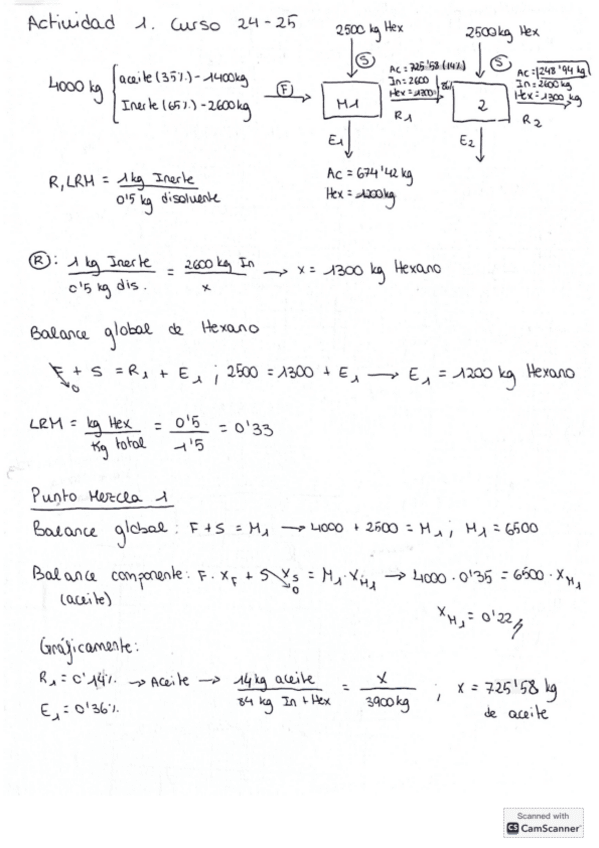 Actividad 1. Curso 24-25
2500 kg Hex
2500 kg Hex
S
S
4000 kg
aceite (35%) - 1400kg
Inerte (65%) - 2600kg
F
M1
Ac = 725'58 (14%)
In = 2600
Hex = 1300
86%
R1
2
Ac = 248'94 kg
In = 2600kg
Hex = 1300 kg
R2
E1
E2
Ac = 674'42 kg
Hex = 1200kg
R, LRM = 1 kg Inerte / 0'5 kg disolvente
R: 1 kg Inerte / 0'5 kg dis. = 2600 kg In / x → x = 1300 kg Hexano
Balance global de Hexano
F + S = R1 + E1 ; 2500 = 1300 + E1 → E1 = 1200 kg Hexano
0
LRM = kg Hex / kg total = 0'5 / 1'5 = 0'33
Punto Mezcla 1
Balance global: F + S = M1 → 4000 + 2500 = M1 ; M1 = 6500
Balance componente: F · XF + S XS = M1 · XM1 → 4000 · 0'35 = 6500 · XM1
0
(aceite)
XM1 = 0'22
Gráficamente:
R1 = 0'14% → Aceite → 14 kg aceite / 84 kg In + Hex = x / 3900 kg ; x = 725'58 kg
E1 = 0'36%
de aceite
Scanned with
CS CamScanner